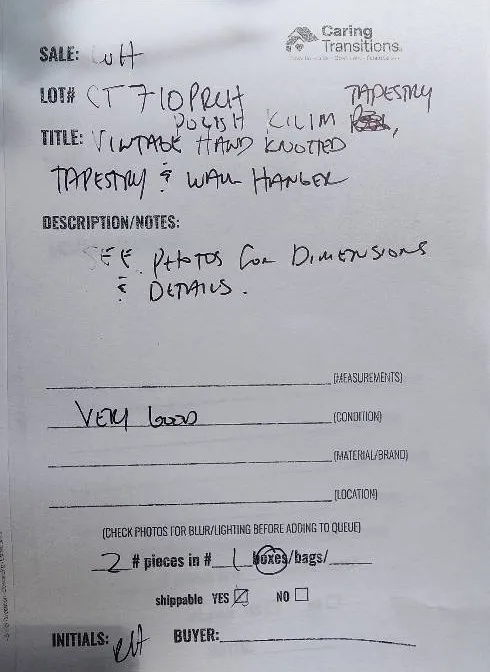 Caring
Transitions
SALE:
LOT# CT710PRCH TAPESTRY
POLISH KILIM
TITLE: VINTAGE HAND KNOTTED
TAPESTRY & WALL HANGER
DESCRIPTION/NOTES:
SEE PHOTOS FOR DIMENSIONS
& DETAILS.
(MEASUREMENTS)
VERY GOOD (CONDITION)
(MATERIAL/BRAND)
(LOCATION)
(CHECK PHOTOS FOR BLUR/LIGHTING BEFORE ADDING TO QUEUE)
2 # pieces in # 1 boxes/bags/
shippable YES NO
INITIALS: BUYER: